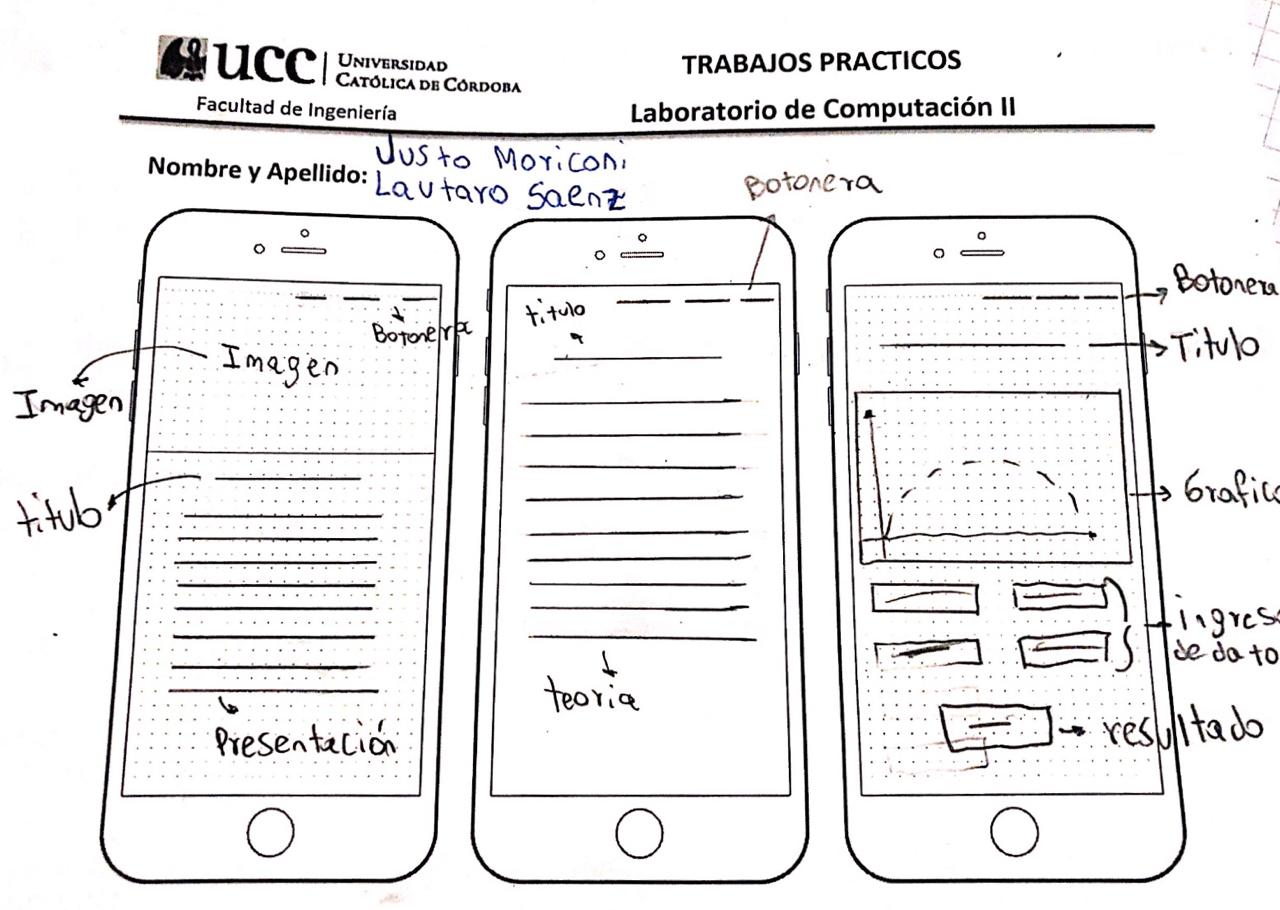 UCC UNIVERSIDAD
CATÓLICA DE CÓRDOBA
Facultad de Ingeniería
TRABAJOS PRACTICOS
Laboratorio de Computación II
Nombre y Apellido: Justo Moriconi
Lautaro Saenz
Botonera
Botonera
Imagen
Imagen
titulo
Presentación
titulo
teoria
Botonera
Titulo
Grafico
ingreso
de dato
resultado